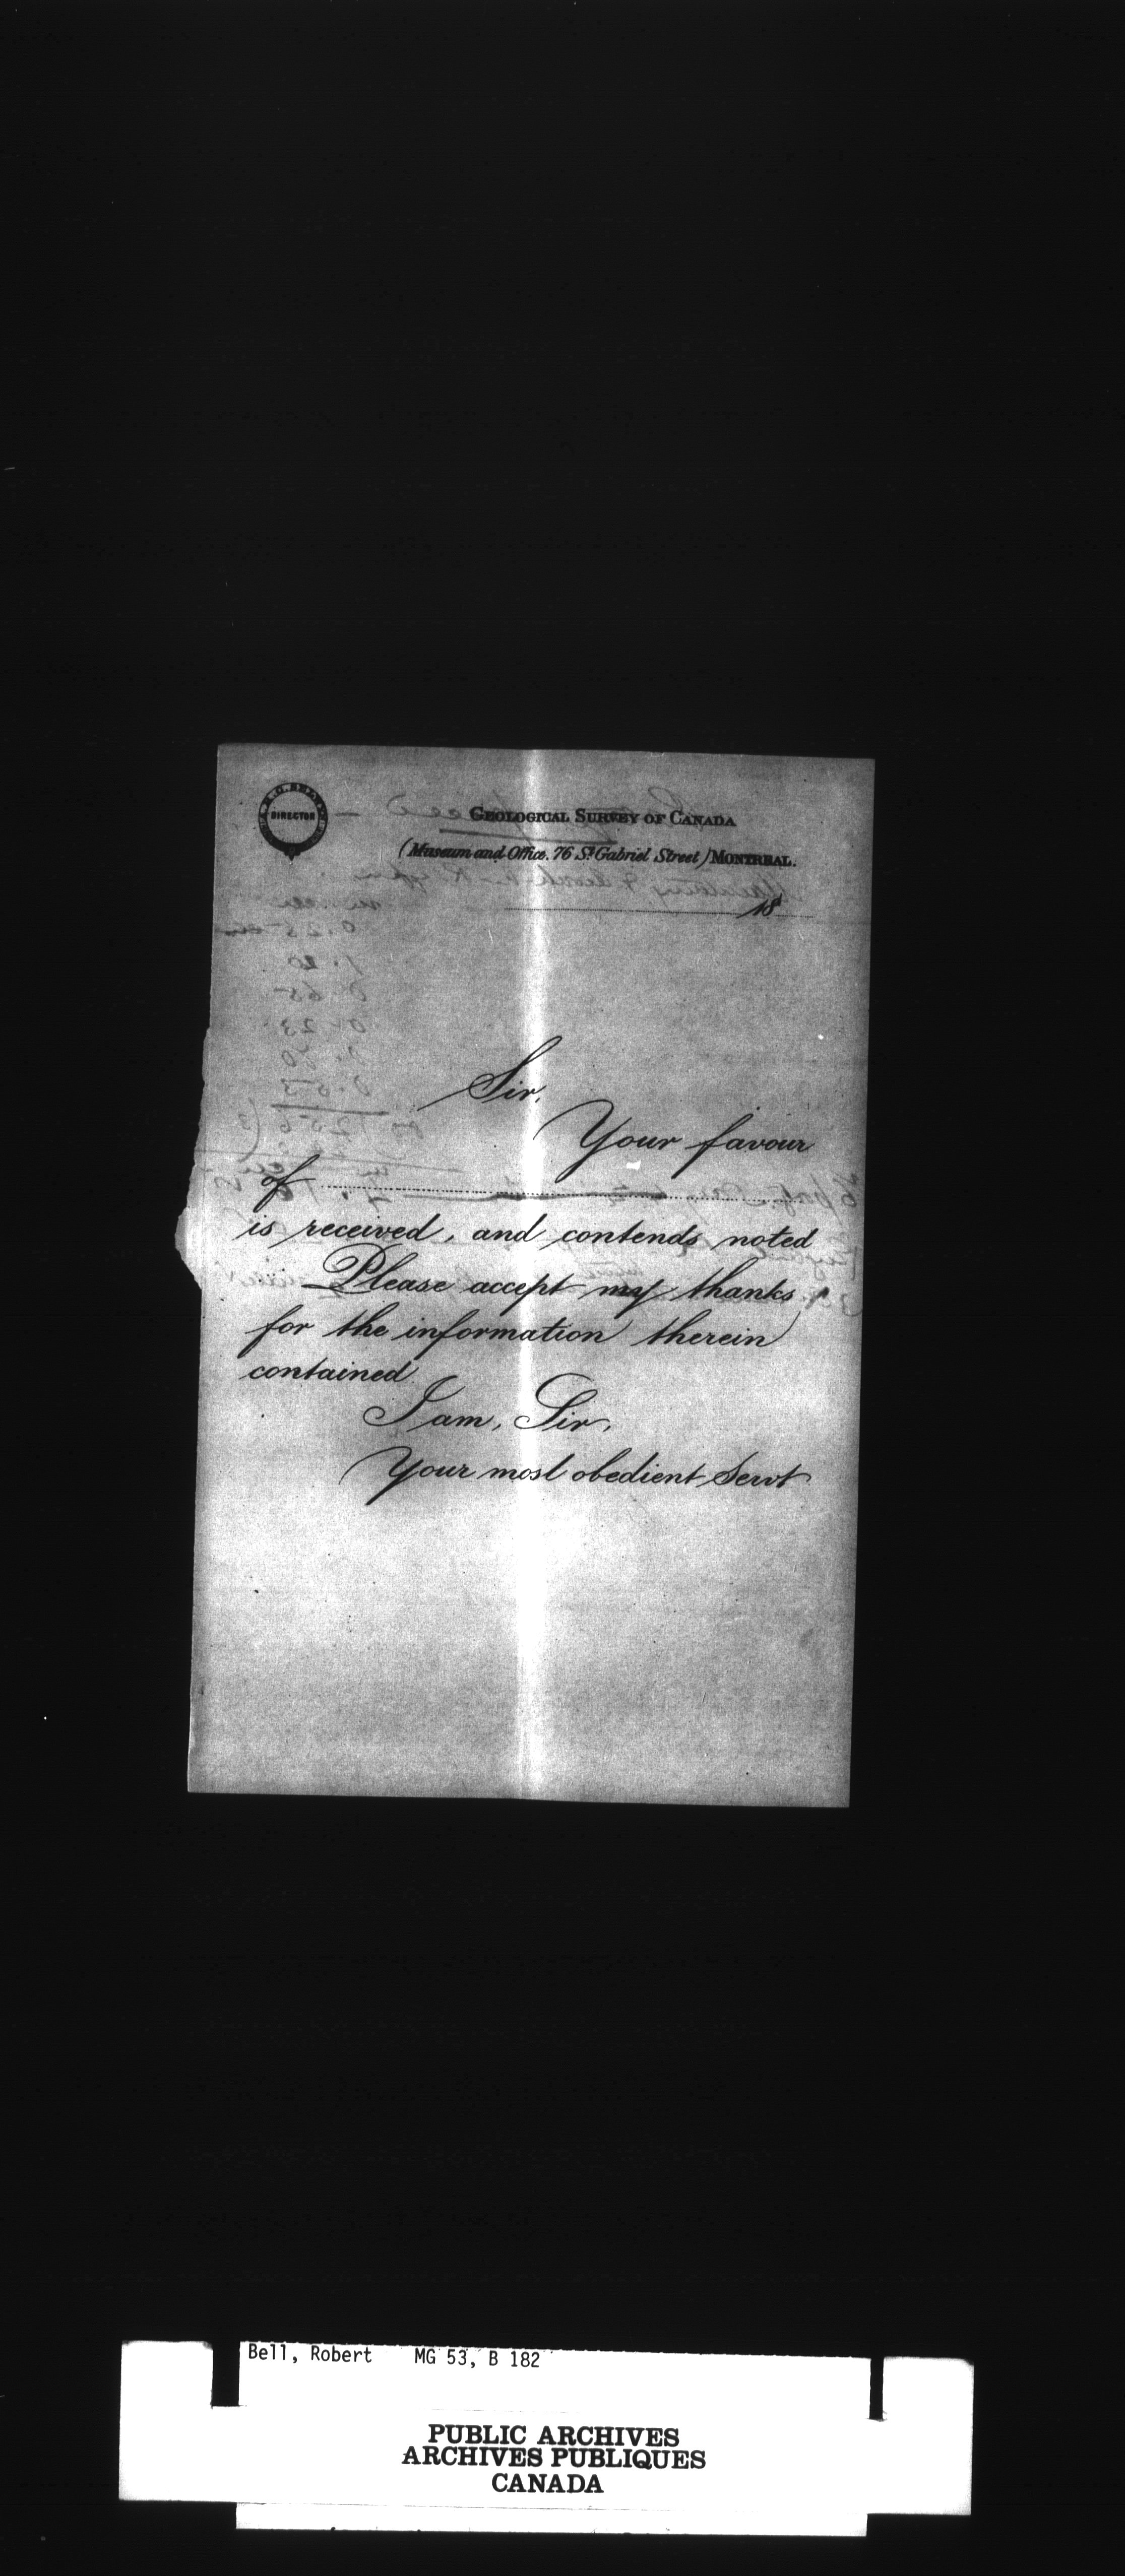 DIRECTOR
GEOLOGICAL SURVEY OF CANADA
(Museum and Office. 76 St. Gabriel Street) MONTREAL.
18
Sir,
Your favour
of
is received, and contends noted
Please accept my thanks
for the information therein
contained
I am, Sir,
Your most obedient Servt
Bell, Robert MG 53, B 182
PUBLIC ARCHIVES
ARCHIVES PUBLIQUES
CANADA